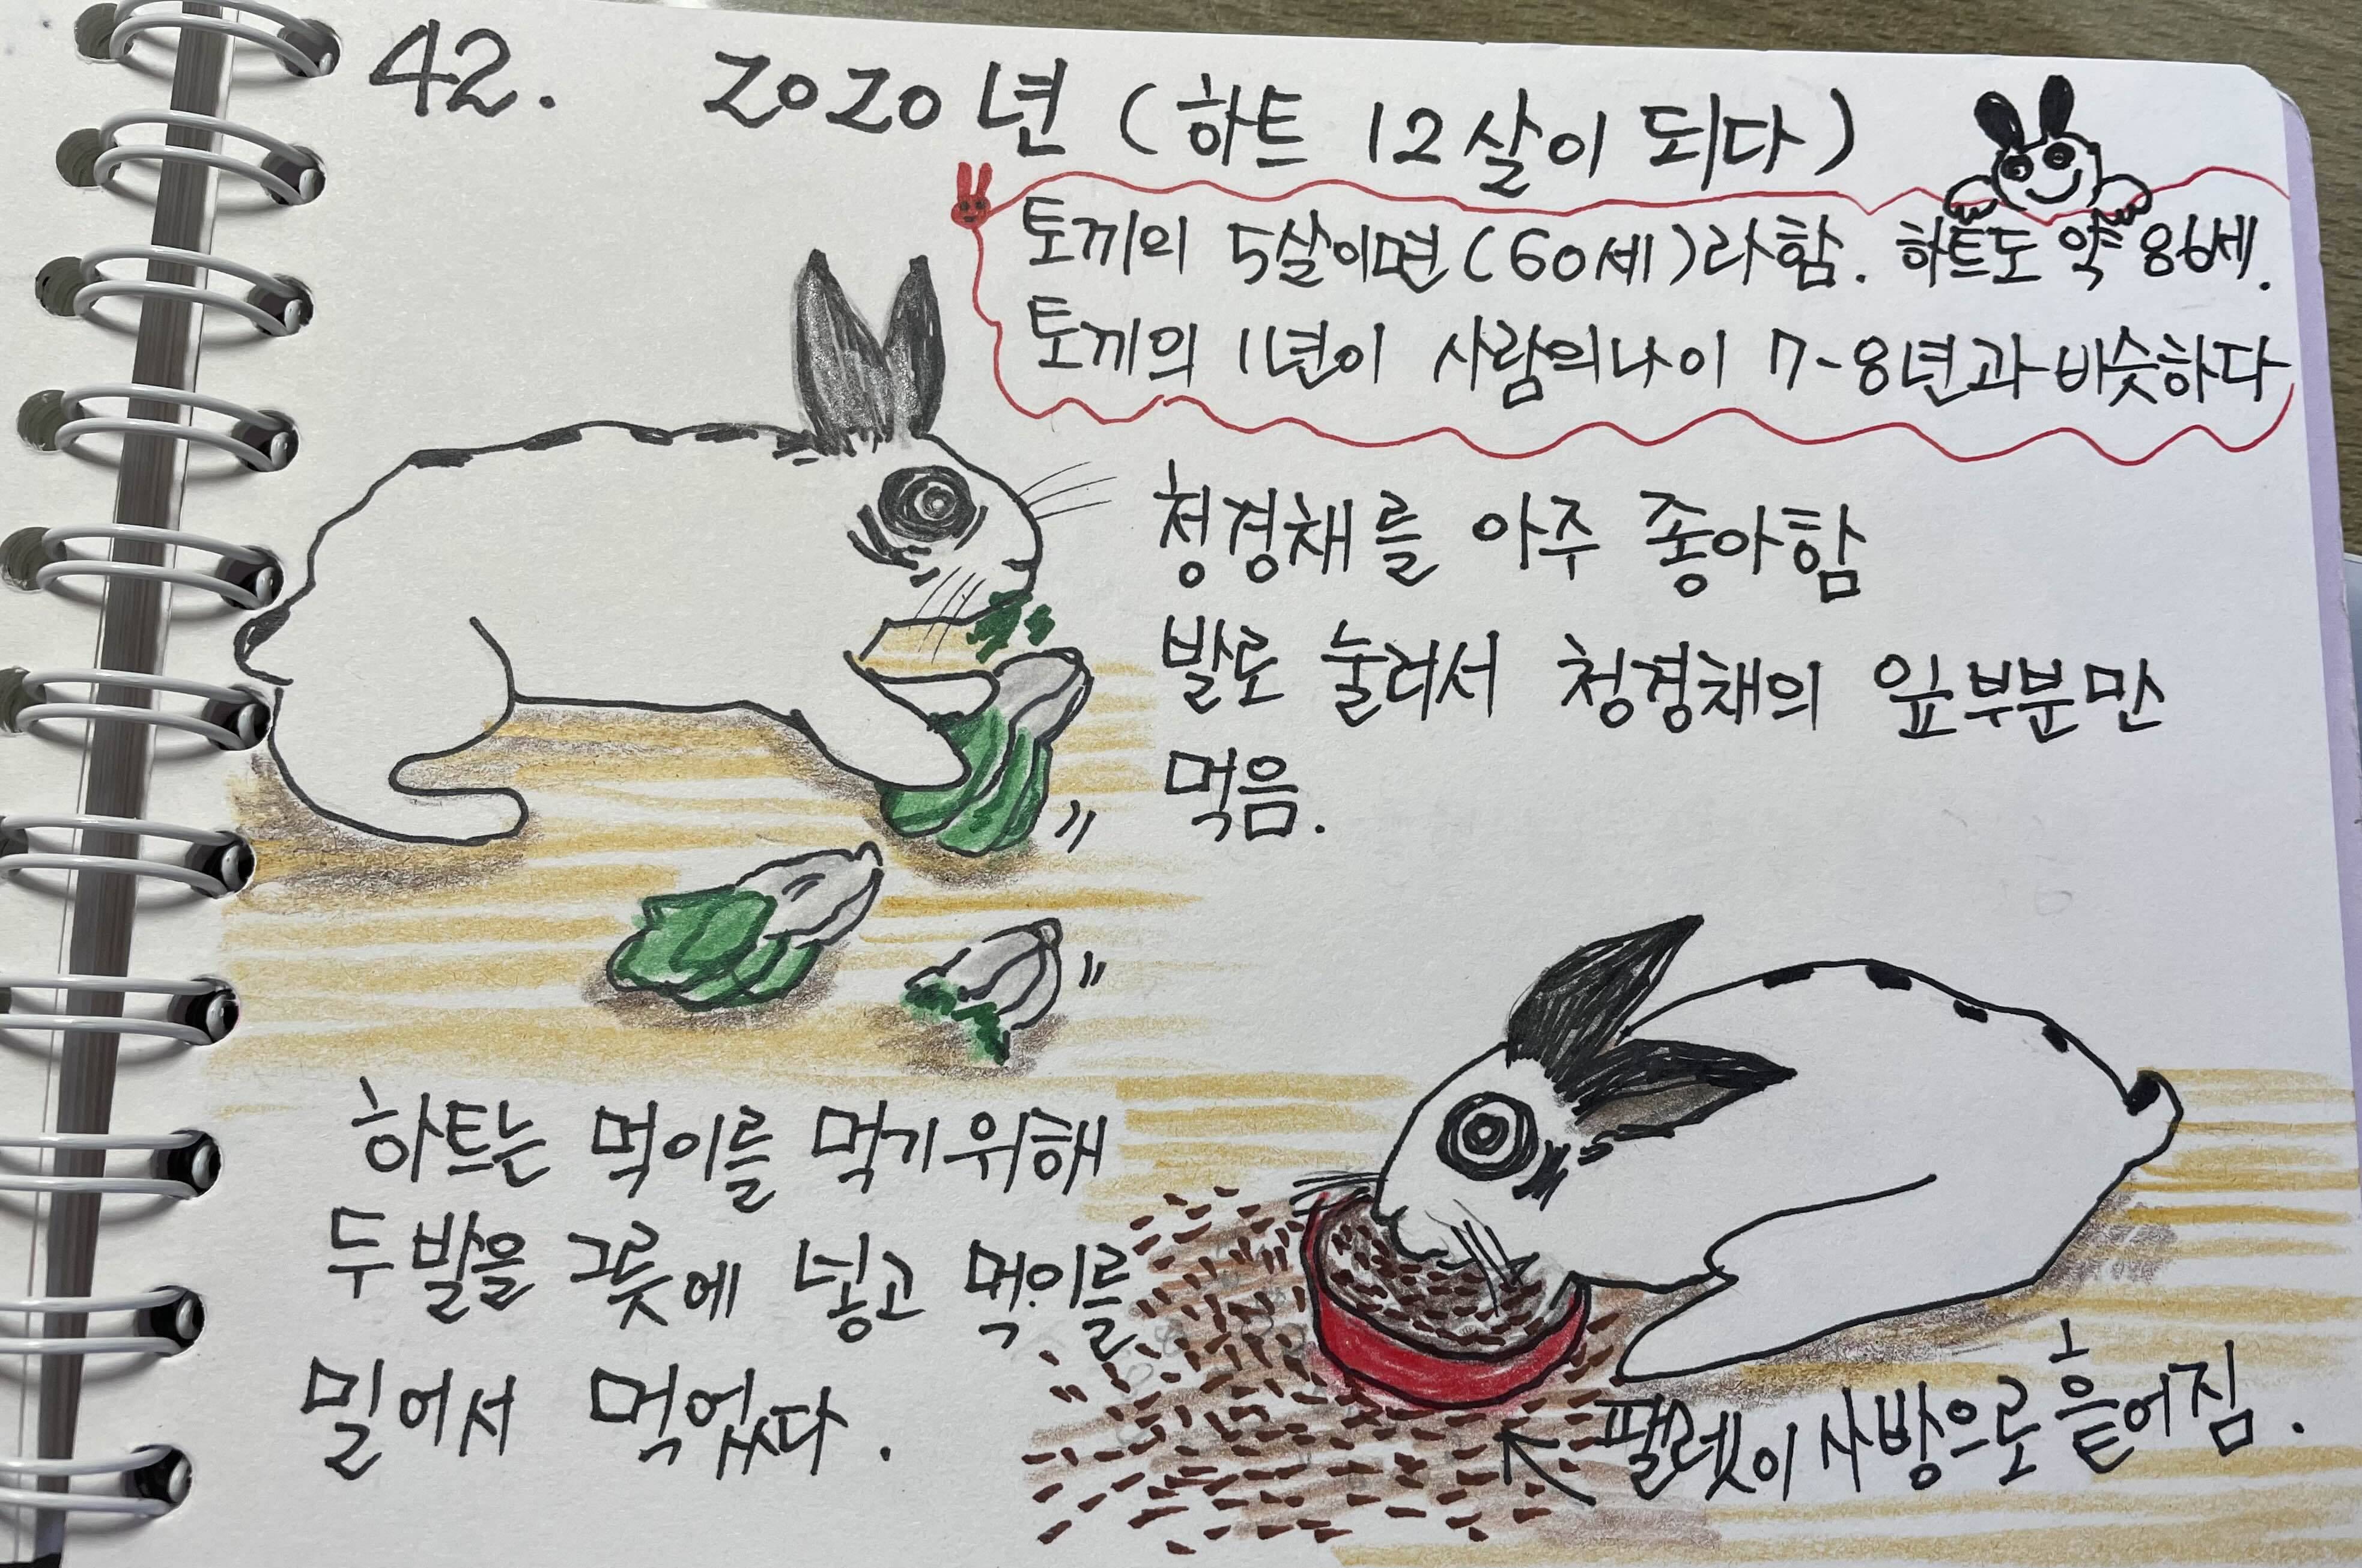 42. 2020년 (하트 12살이 되다)
토끼의 5살이면(60세)라함. 하트도 약 86세.
토끼의 1년이 사람의나이 7-8년과비슷하다
청경채를 아주 좋아함
발로 눌러서 청경채의 잎부분만
먹음.
하트는 먹이를 먹기위해
두발을 그릇에 넣고 먹이를
밀어서 먹었다.
팰렛이 사방으로 흩어짐.